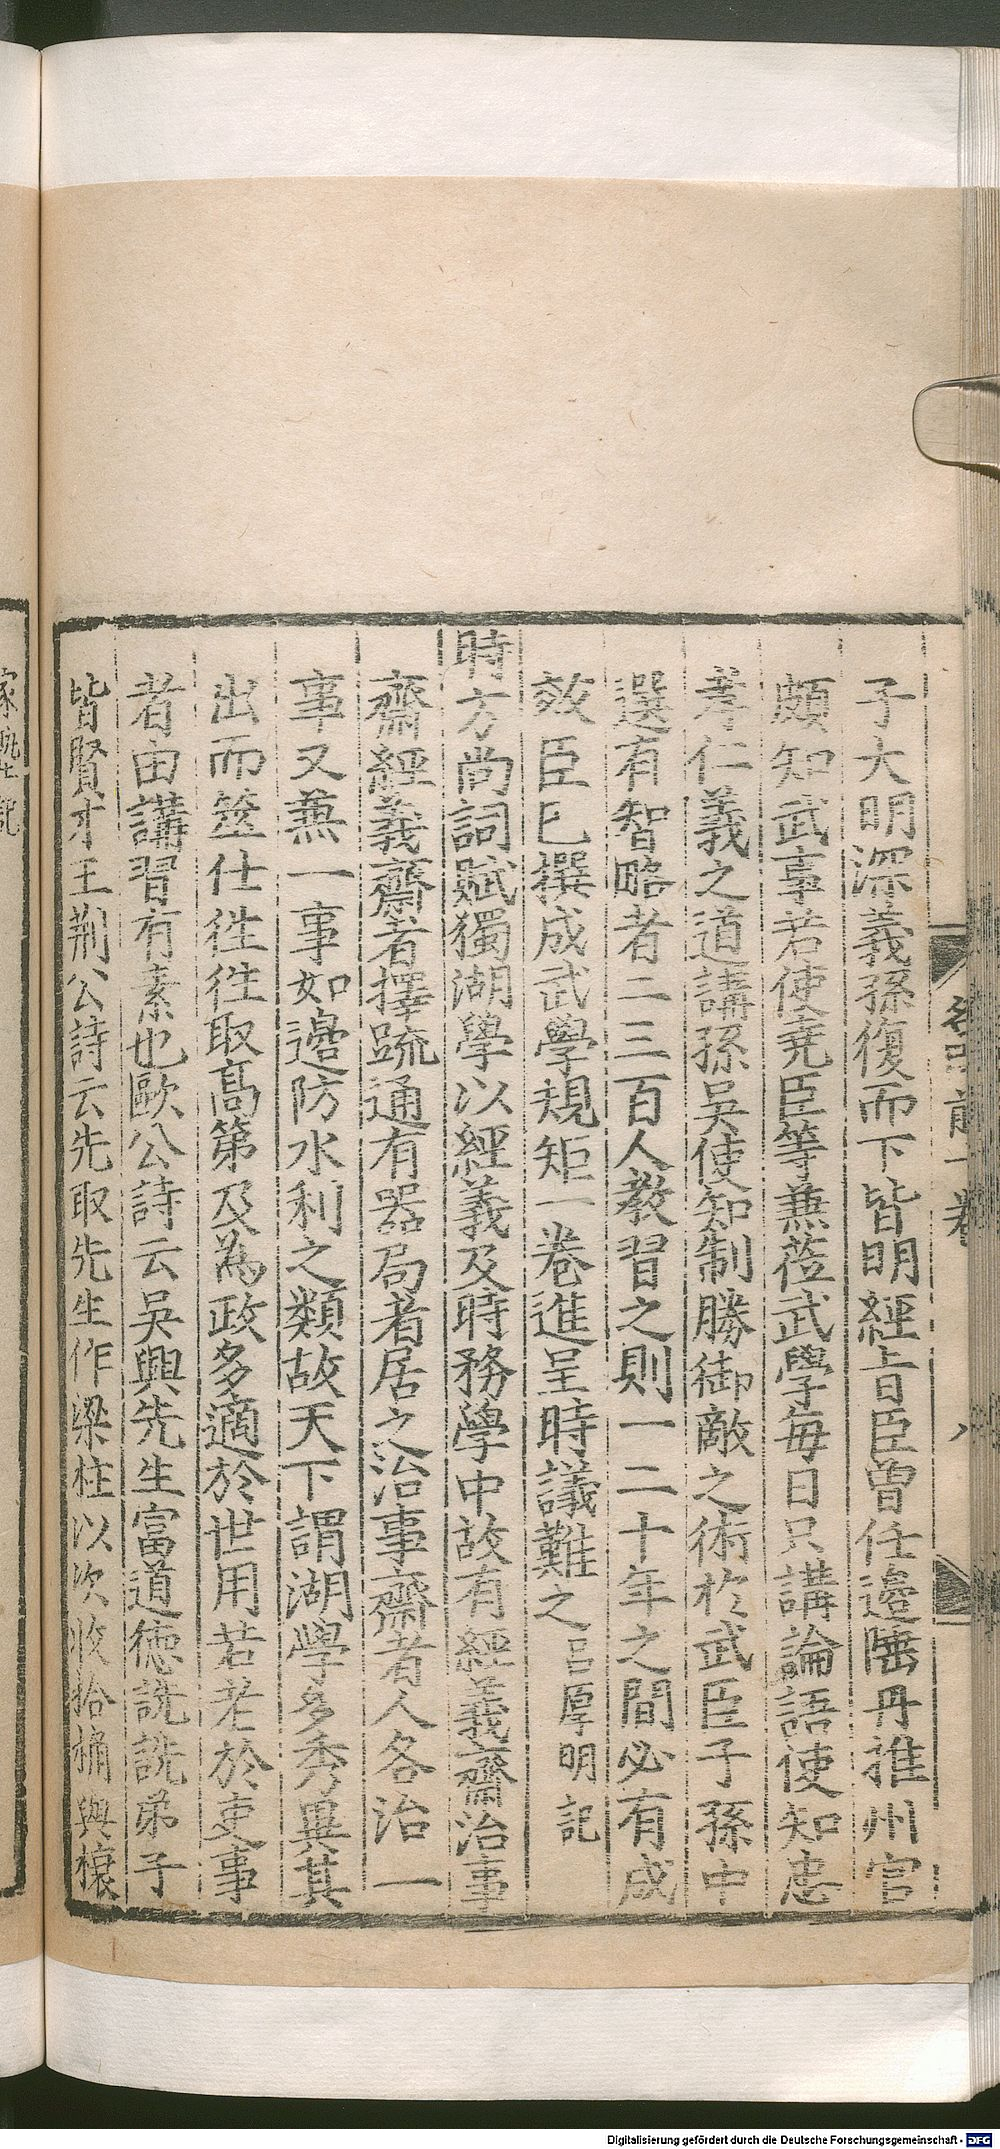 子大明深義孫復而下皆明經上旨臣曽任邉陲丹推州官
頗知武事若使堯臣等蒹蒞武學毎日只講論語使知忠
孝仁義之道講孫吳使知制勝御敵之術於武臣子孫中
選有智略者二三百人教習之則一二十年之間必有成
效臣已撰成武學規矩一卷進呈時議難之 吕厚明記
時方尚詞賦獨湖學以經義及時務學中故有經義齋治事
齋經義齋者擇疏通有器局者居之治事齋者人各治一
事又蒹一事如邉防水利之類故天下謂湖學多秀異其
出而筮仕徃徃取髙第及為政多適於世用若老於吏事
者由講習有素也歐公詩云吳興先生富道德詵詵弟子
皆賢才王荆公詩云先取先生作梁柱以次收拾桷與榱
前一卷
八
Digitalisierung gefördert durch die Deutsche Forschungsgemeinschaft - DFG